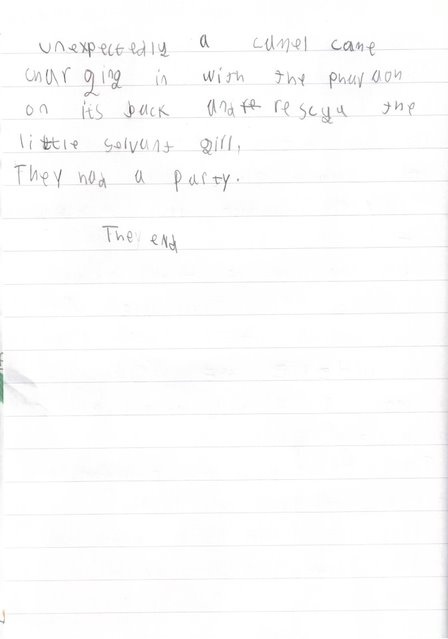 unexpectedly a camel came
charging in with the pharaoh
on its back and rescyu the
little servant girl.
They had a party.
The end